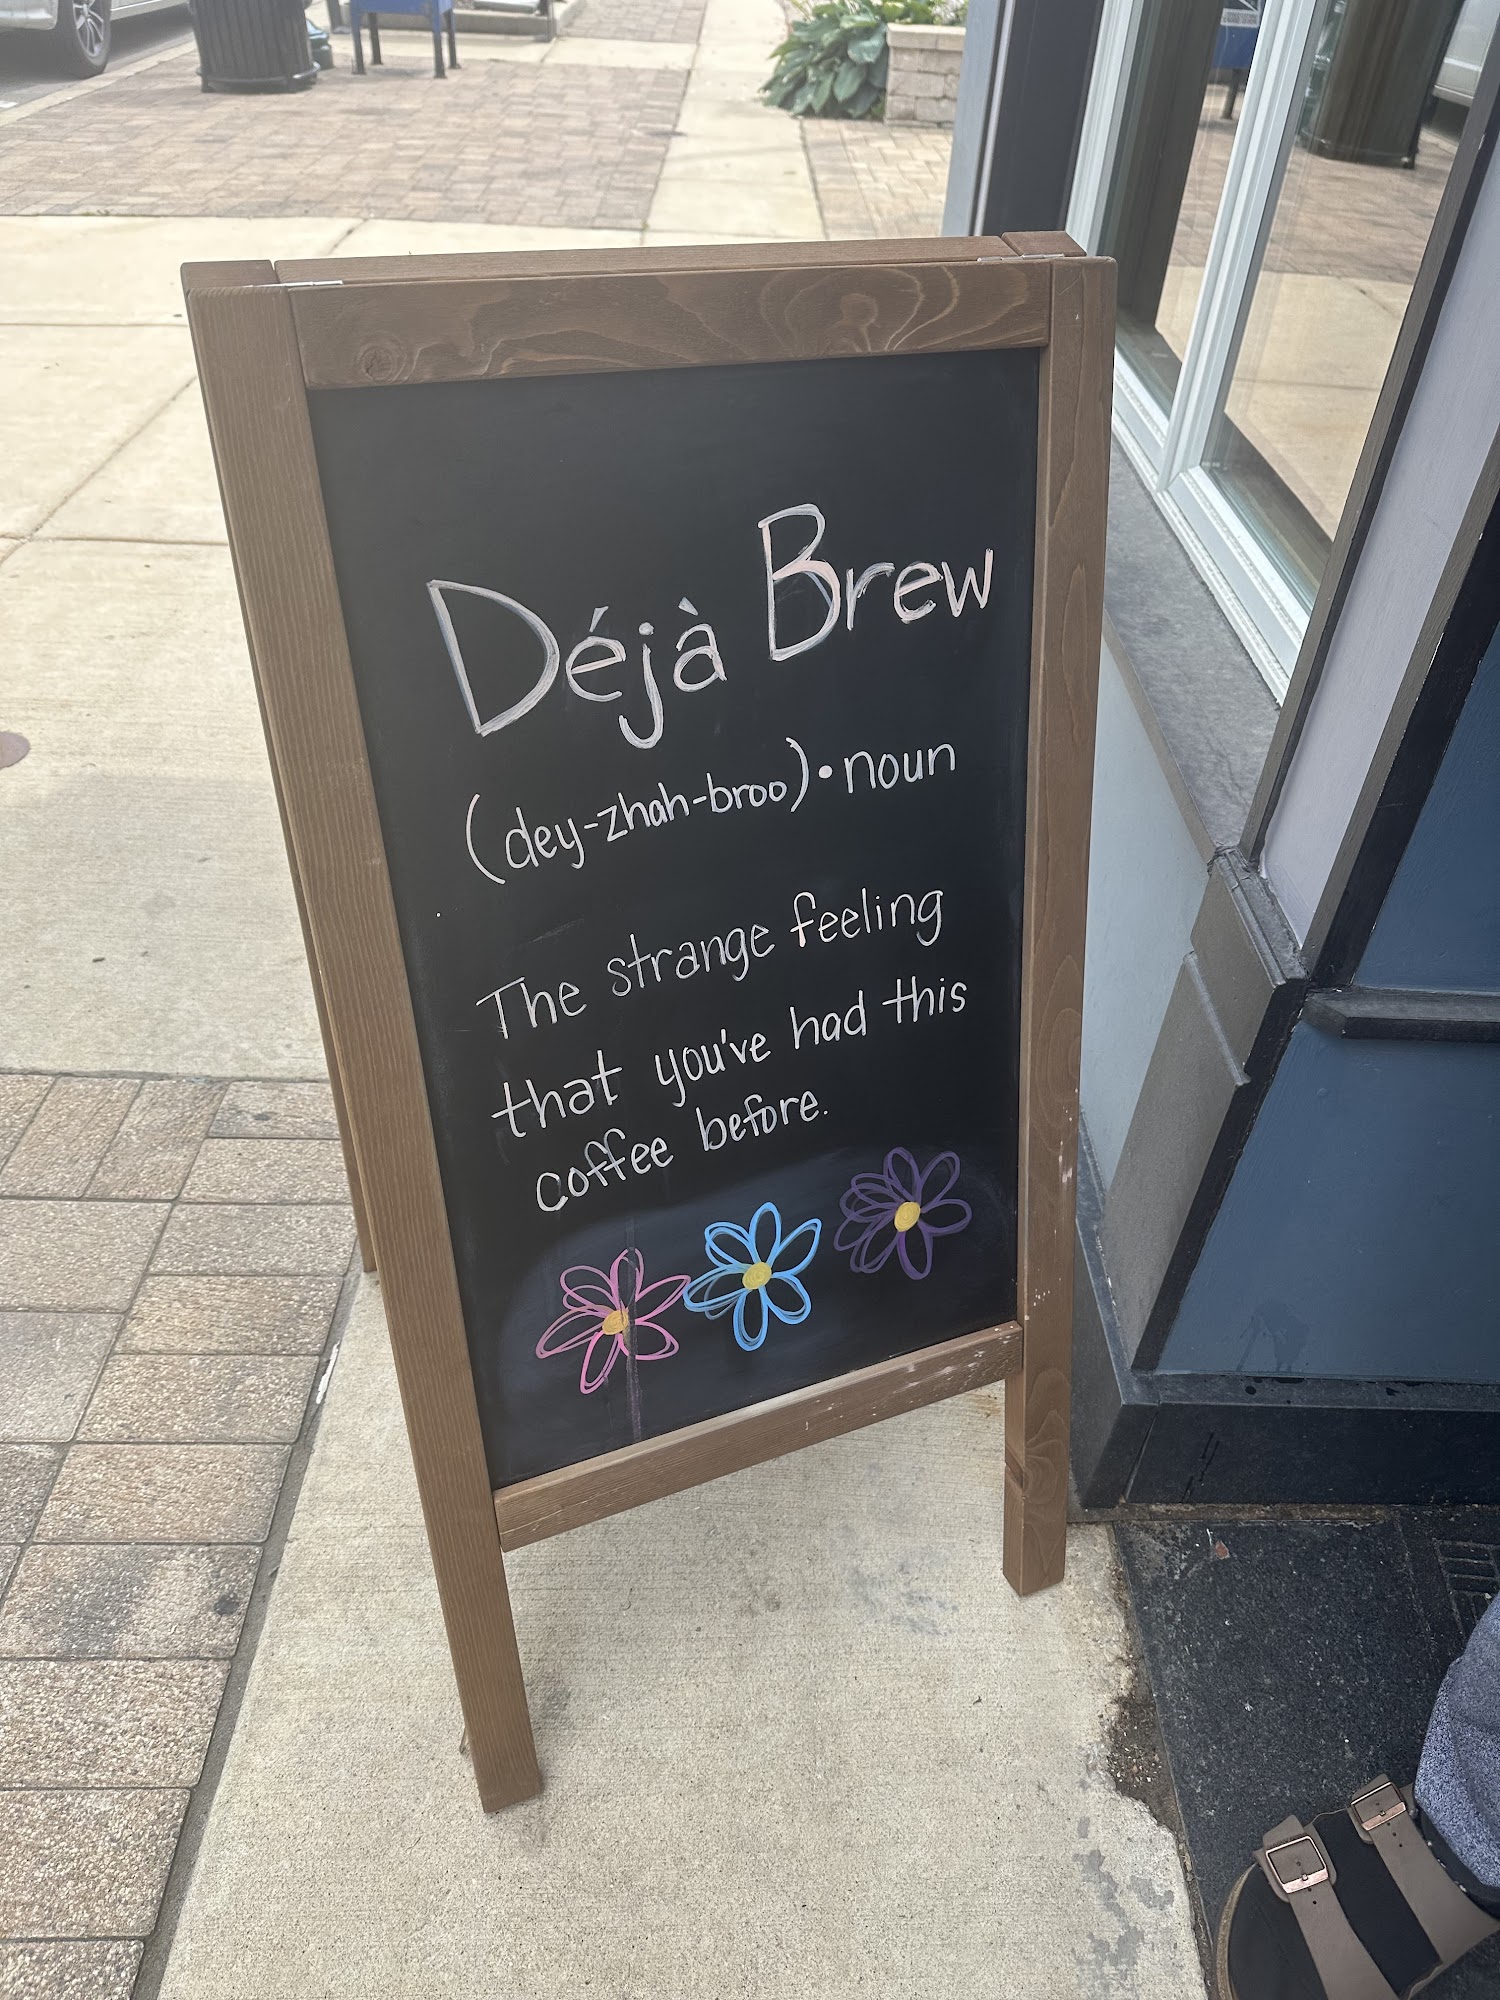 Déjà Brew
(dey-zhah-broo)•noun
The strange feeling
that you've had this
coffee before.